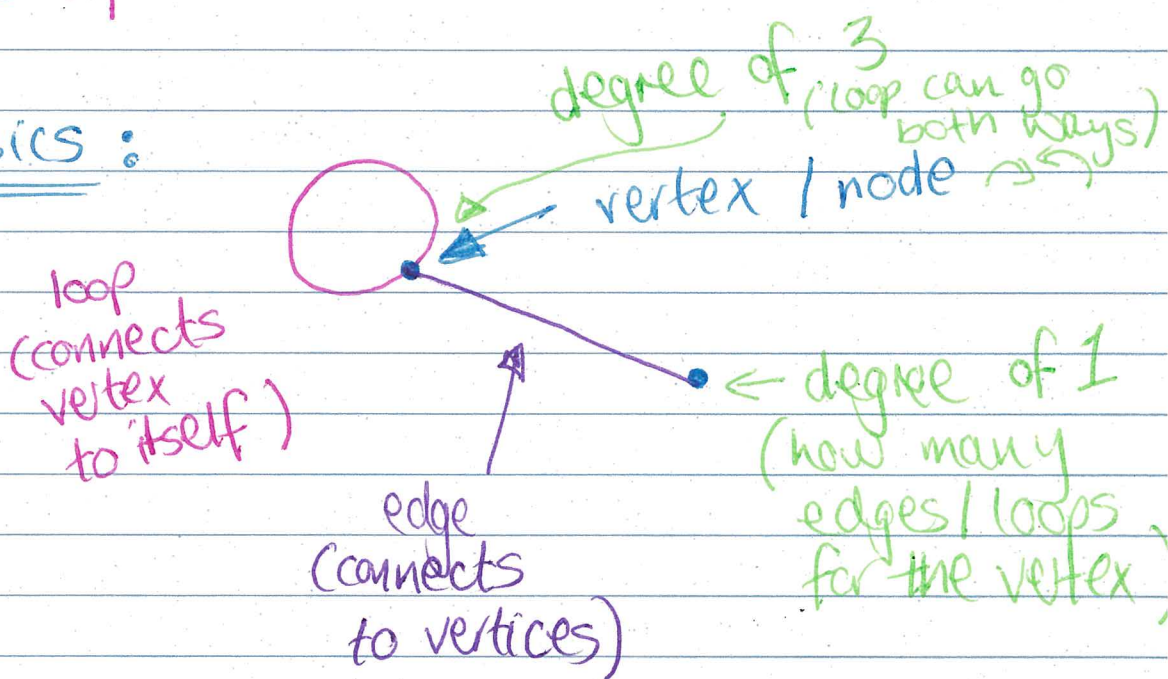 degree of 3
(loop can go
both ways)
ics :
vertex / node
loop
(connects
vertex
to itself)
degree of 1
(how many
edges / loops
for the vertex)
edge
(connects
to vertices)